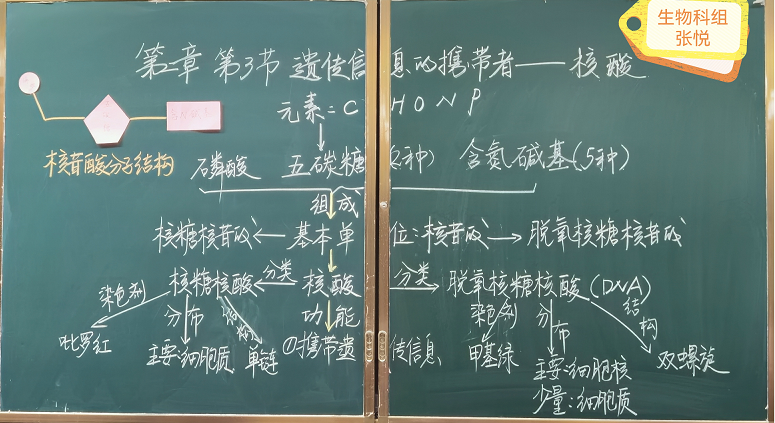 生物科组
张悦
第二章 第3节 遗传信息的携带者——核酸
元素:C H O N P
核苷酸分子结构
磷酸 五碳糖(2种) 含氮碱基(5种)
组成
核糖核苷成 ← 基本单位:核苷成 → 脱氧核糖核苷成
核糖核酸 ← 分类 核酸 分类 → 脱氧核糖核酸(DNA)
染色剂 分布 结构 功能 染色剂 分布 结构
吡罗红 主要:细胞质 单链 ①携带遗传信息 甲基绿 主要:细胞核 双螺旋
少量:细胞质